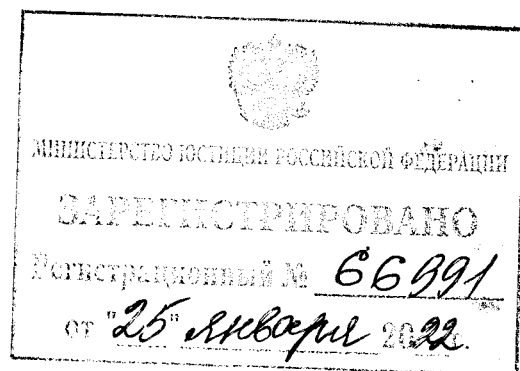 МИНИСТЕРСТВО ЮСТИЦИИ РОССИЙСКОЙ ФЕДЕРАЦИИ
ЗАРЕГИСТРИРОВАНО
Регистрационный № 66991
от "25" января 2022г.